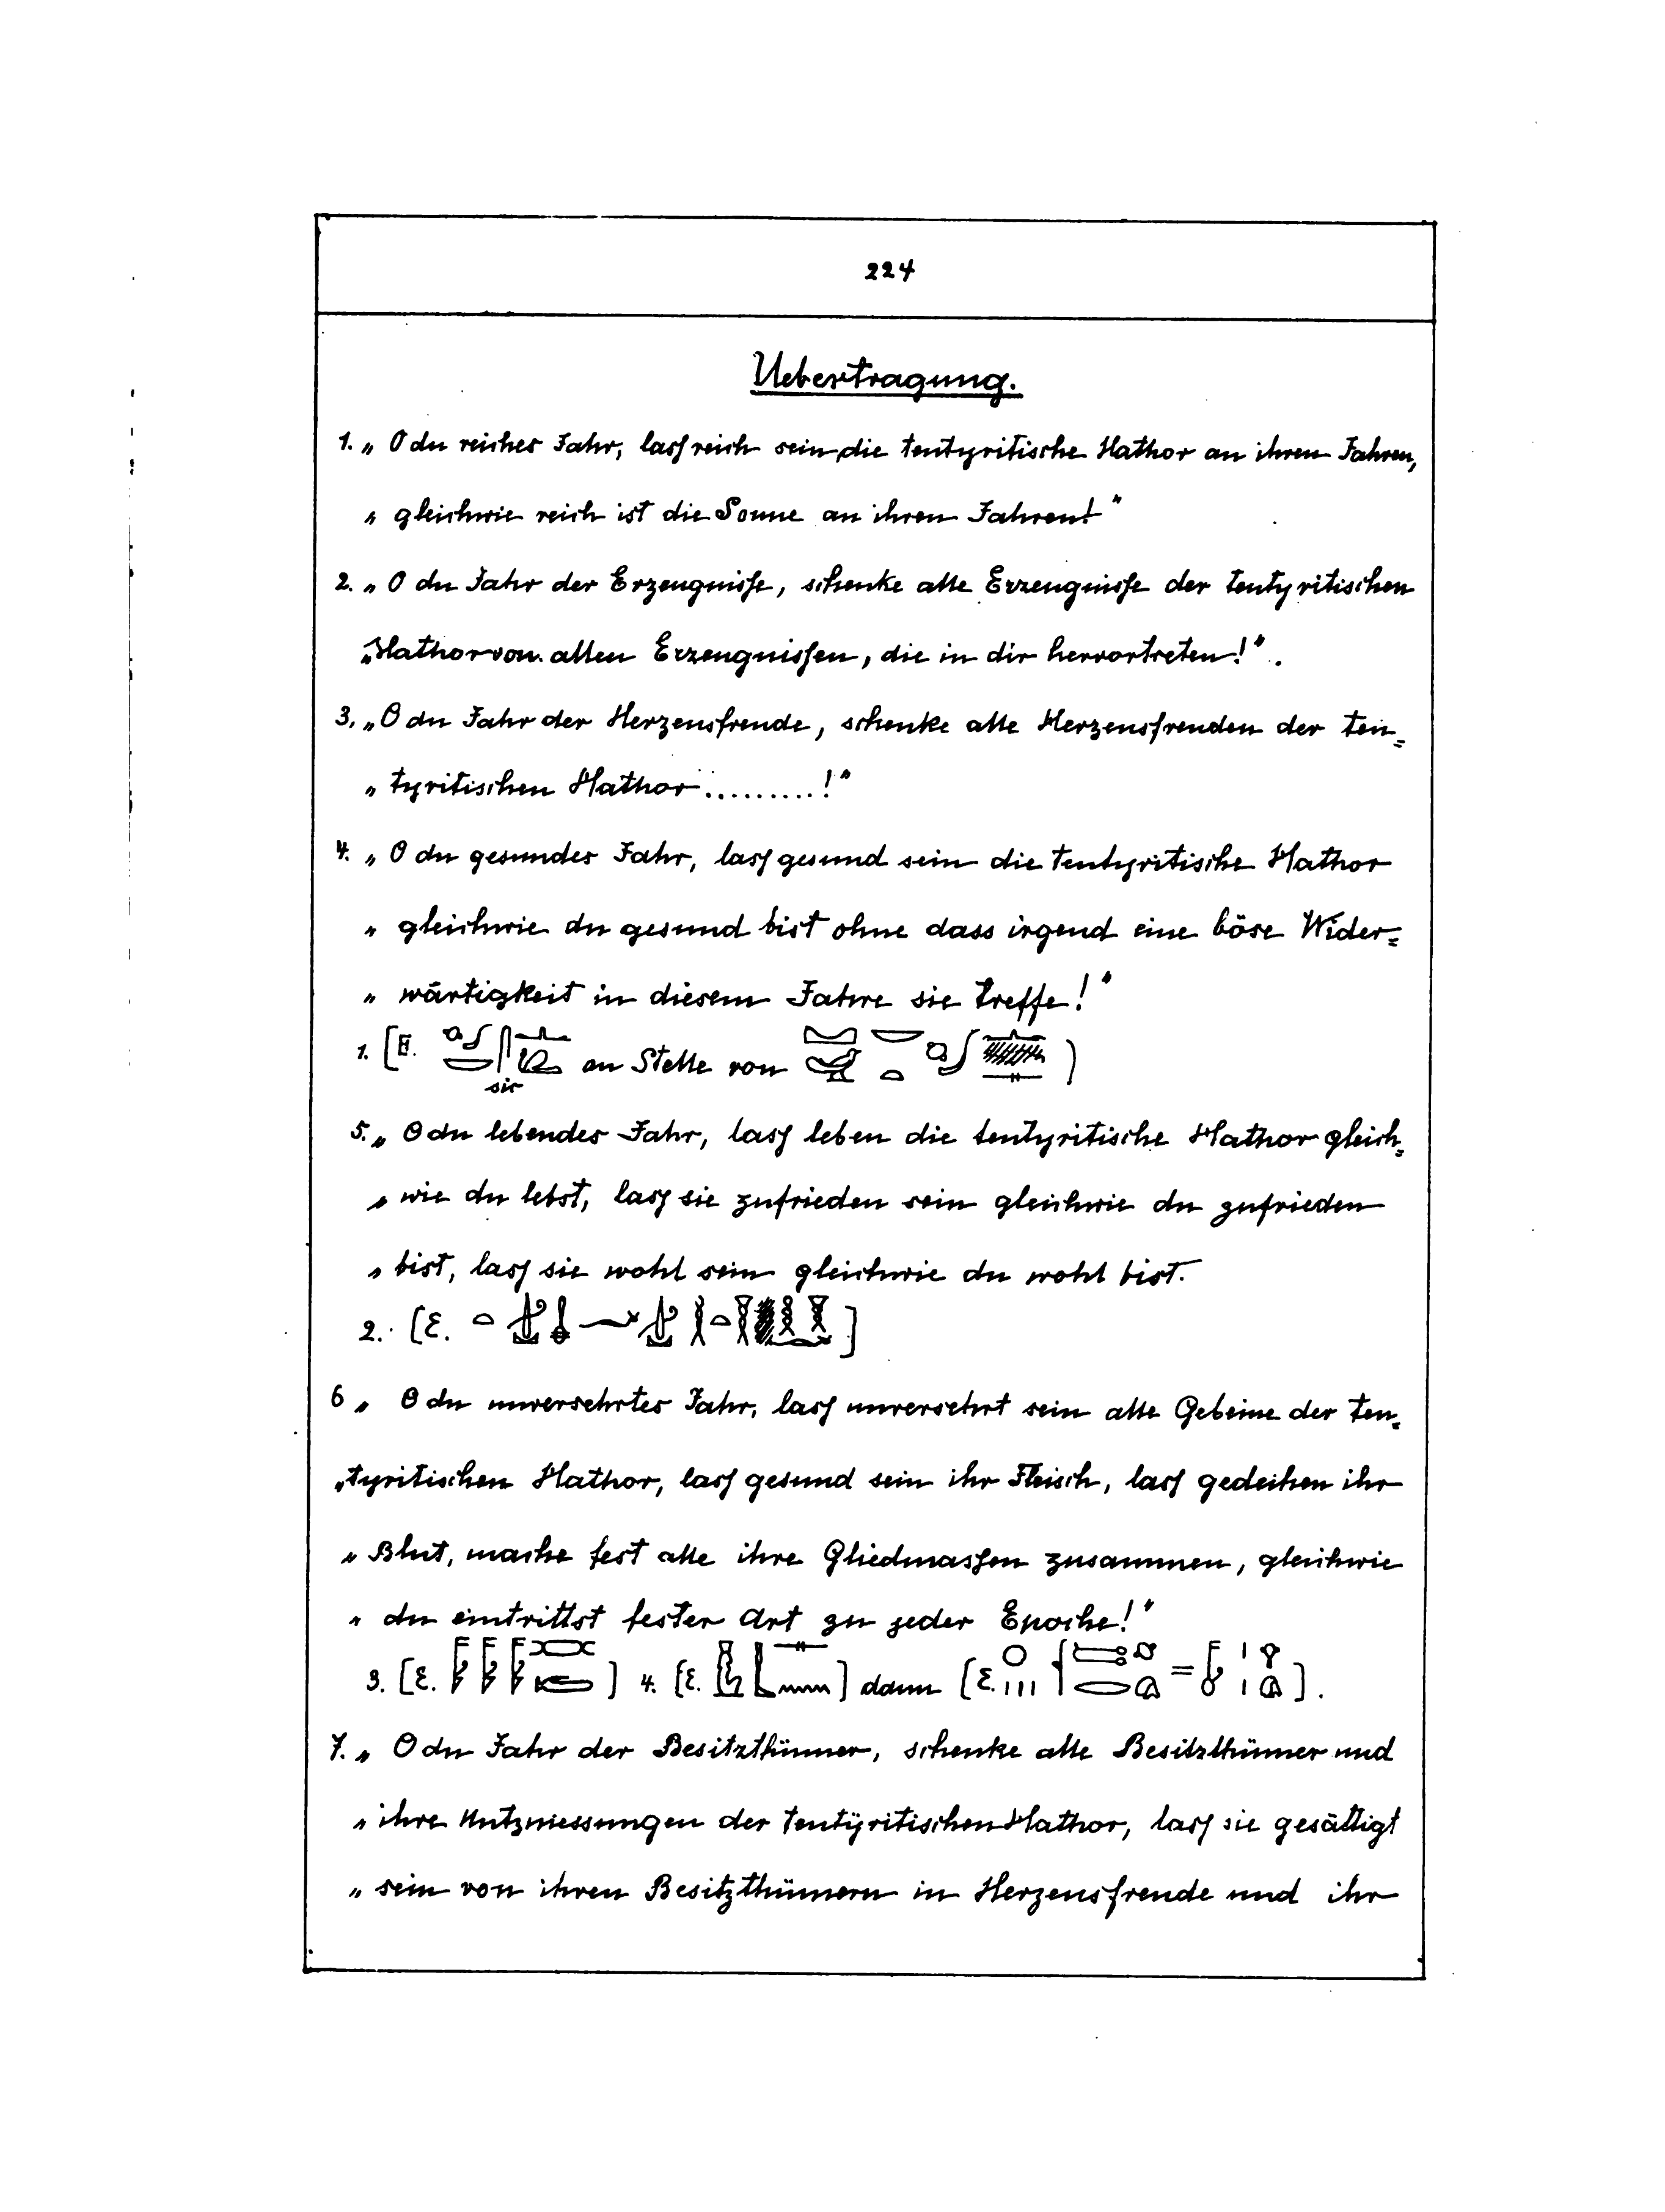 224
Uebertragung.
1. „ O du reiches Jahr, lass reich sein die tentyritische Hathor an ihren Jahren,
„ gleichwie reich ist die Sonne an ihren Jahren!“
2. „ O du Jahr der Erzeugnisse, schenke alle Erzeugnisse der tentyritischen
„Hathor von allen Erzeugnissen, die in dir hervortreten!“.
3. „O du Jahr der Herzensfreude, schenke alle Herzensfreuden der ten=
„ tyritischen Hathor .........!“
4. „ O du gesundes Jahr, lass gesund sein die tentyritische Hathor
„ gleichwie du gesund bist ohne dass irgend eine böse Wider=
„ wärtigkeit in diesem Jahre sie treffe!“
1. [E. an Stelle von )
sic
5. „ O du lebendes Jahr, lass leben die tentyritische Hathor gleich=
„ wie du lebst, lass sie zufrieden sein gleichwie du zufrieden
„ bist, lass sie wohl sein gleichwie du wohl bist.
2. [E. ]
6 „ O du unversehrtes Jahr, lass unversehrt sein alle Gebeine der ten=
„tyritischen Hathor, lass gesund sein ihr Fleisch, lass gedeihen ihr
„ Blut, mache fest alle ihre Gliedmassen zusammen, gleichwie
„ du eintrittst fester Art zu jeder Epoche!“
3. [E. ] 4. [E. ] dann [E. = ].
7. „ O du Jahr der Besitzthümer, schenke alle Besitzthümer und
„ ihre Nutzniessungen der tentÿritischen Hathor, lass sie gesättigt
„ sein von ihren Besitzthümern in Herzensfreude und ihr